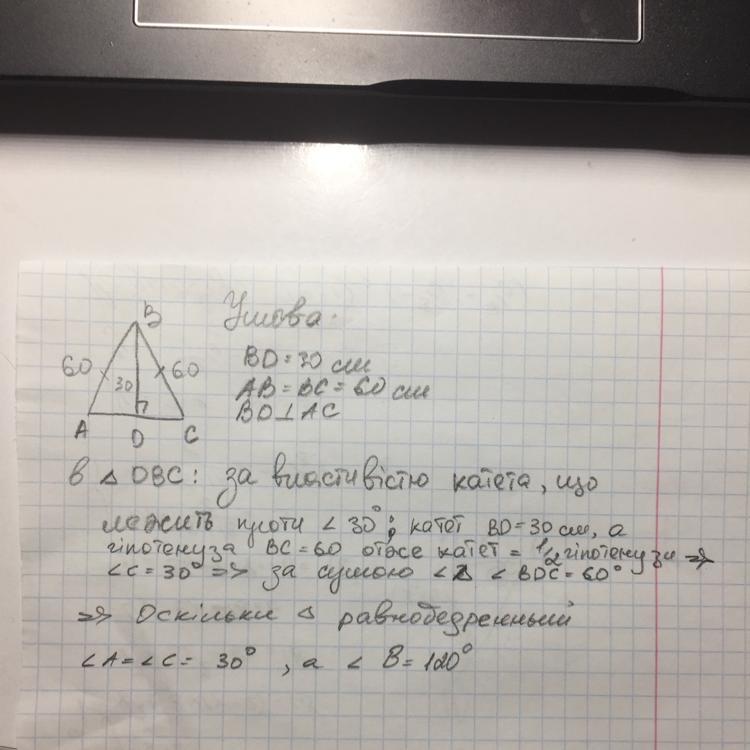 B
Умова.
60
60
30
BD = 30 см
AB = BC = 60 см
BD ⊥ AC
A
D
C
В △ DBC: за властивістю катета, що
лежить проти ∠ 30°; катет BD = 30 см, а
гіпотенуза BC = 60 отже катет = 1/2 гіпотенузи ⇒
∠C = 30° ⇒ за сумою ∠ △ ∠ BDC = 60°
⇒ Оскільки △ равнобедренный
∠A = ∠C = 30°, а ∠ B = 120°